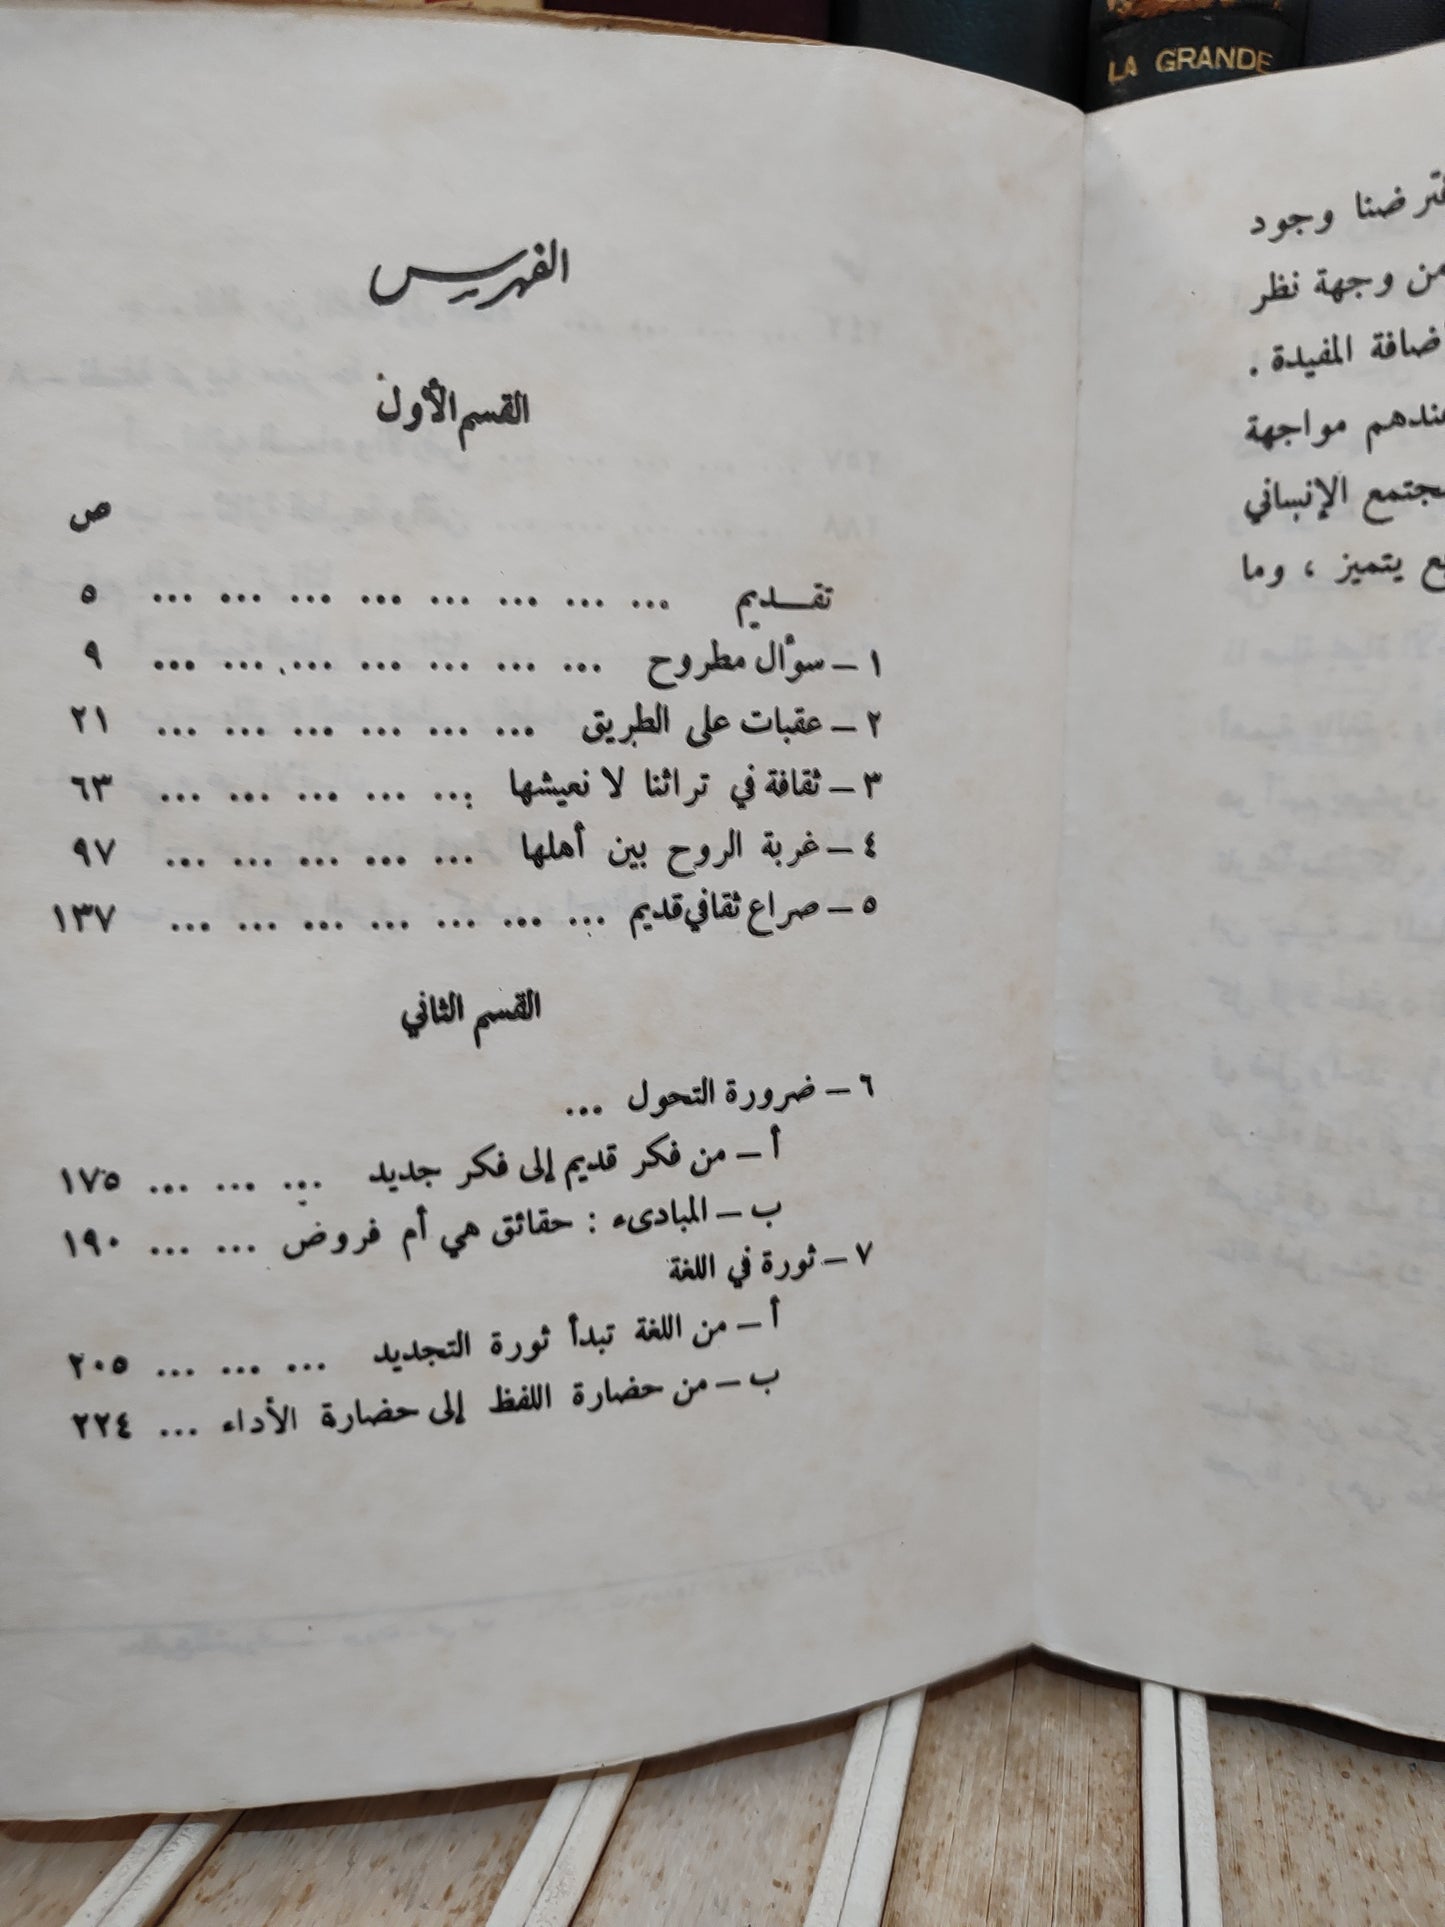 LA GRANDE
الفهرس
القسم الأول
ص
تقـديم ... ... ... ... ... ... ... ... ٥
١ – سؤال مطروح ... ... ... ... ... ... ... ٩
٢ – عقبات على الطريق ... ... ... ... ... ... ٢١
٣ – ثقافة في تراثنا لا نعيشها ... ... ... ... ... ٦٣
٤ – غربة الروح بين أهلها ... ... ... ... ... ٩٧
٥ – صراع ثقافي قديم ... ... ... ... ... ... ... ١٣٧
القسم الثاني
٦ – ضرورة التحول ...
أ – من فكر قديم إلى فكر جديد ... ... ... ١٧٥
ب – المبادىء : حقائق هي أم فروض ... ... ١٩٠
٧ – ثورة في اللغة
أ – من اللغة تبدأ ثورة التجديد ... ... ... ٢٠٥
ب – من حضارة اللفظ إلى حضارة الأداء ... ٢٢٤
وجود
من وجهة نظر
المفيدة .
عندهم مواجهة
الإنساني
يتميز ، وما